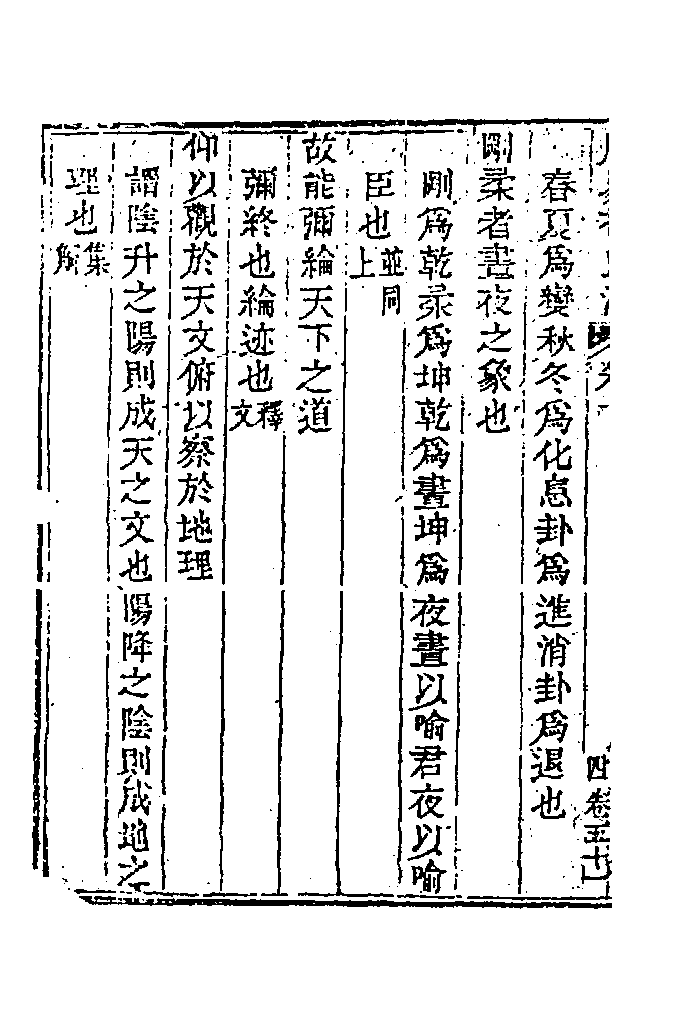 春夏為變秋冬為化息卦為進消卦為退也
剛柔者晝夜之象也
剛為乾柔為坤乾為晝坤為夜晝以喻君夜以喻
臣也並同上
故能彌綸天下之道
彌終也綸迹也釋文
仰以觀於天文俯以察於地理
謂陰升之陽則成天之文也陽降之陰則成地之
理也集解
四 卷五十